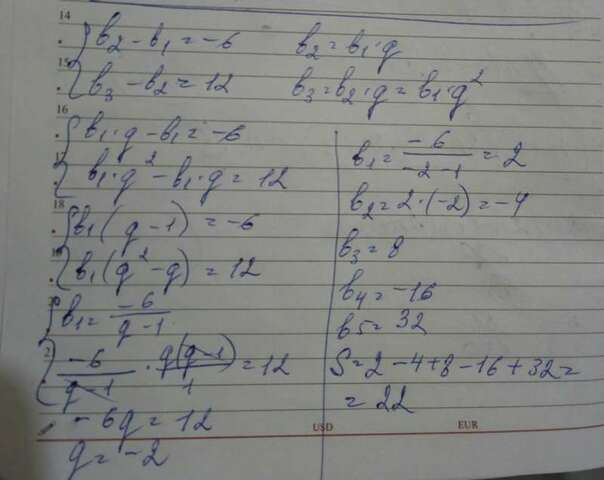 14
b₂ - b₁ = -6 b₂ = b₁·q
15
b₃ - b₂ = 12 b₃ = b₂·q = b₁·q²
16
b₁·q - b₁ = -6
17
b₁·q² - b₁·q = 12
18
b₁(q - 1) = -6
19
b₁(q² - q) = 12
20
b₁ = -6/(q - 1)
21
-6/(q - 1) · q(q - 1)/1 = 12
-6q = 12
q = -2
b₁ = -6/(-2 - 1) = 2
b₂ = 2·(-2) = -4
b₃ = 8
b₄ = -16
b₅ = 32
S = 2 - 4 + 8 - 16 + 32 =
= 22
USD EUR